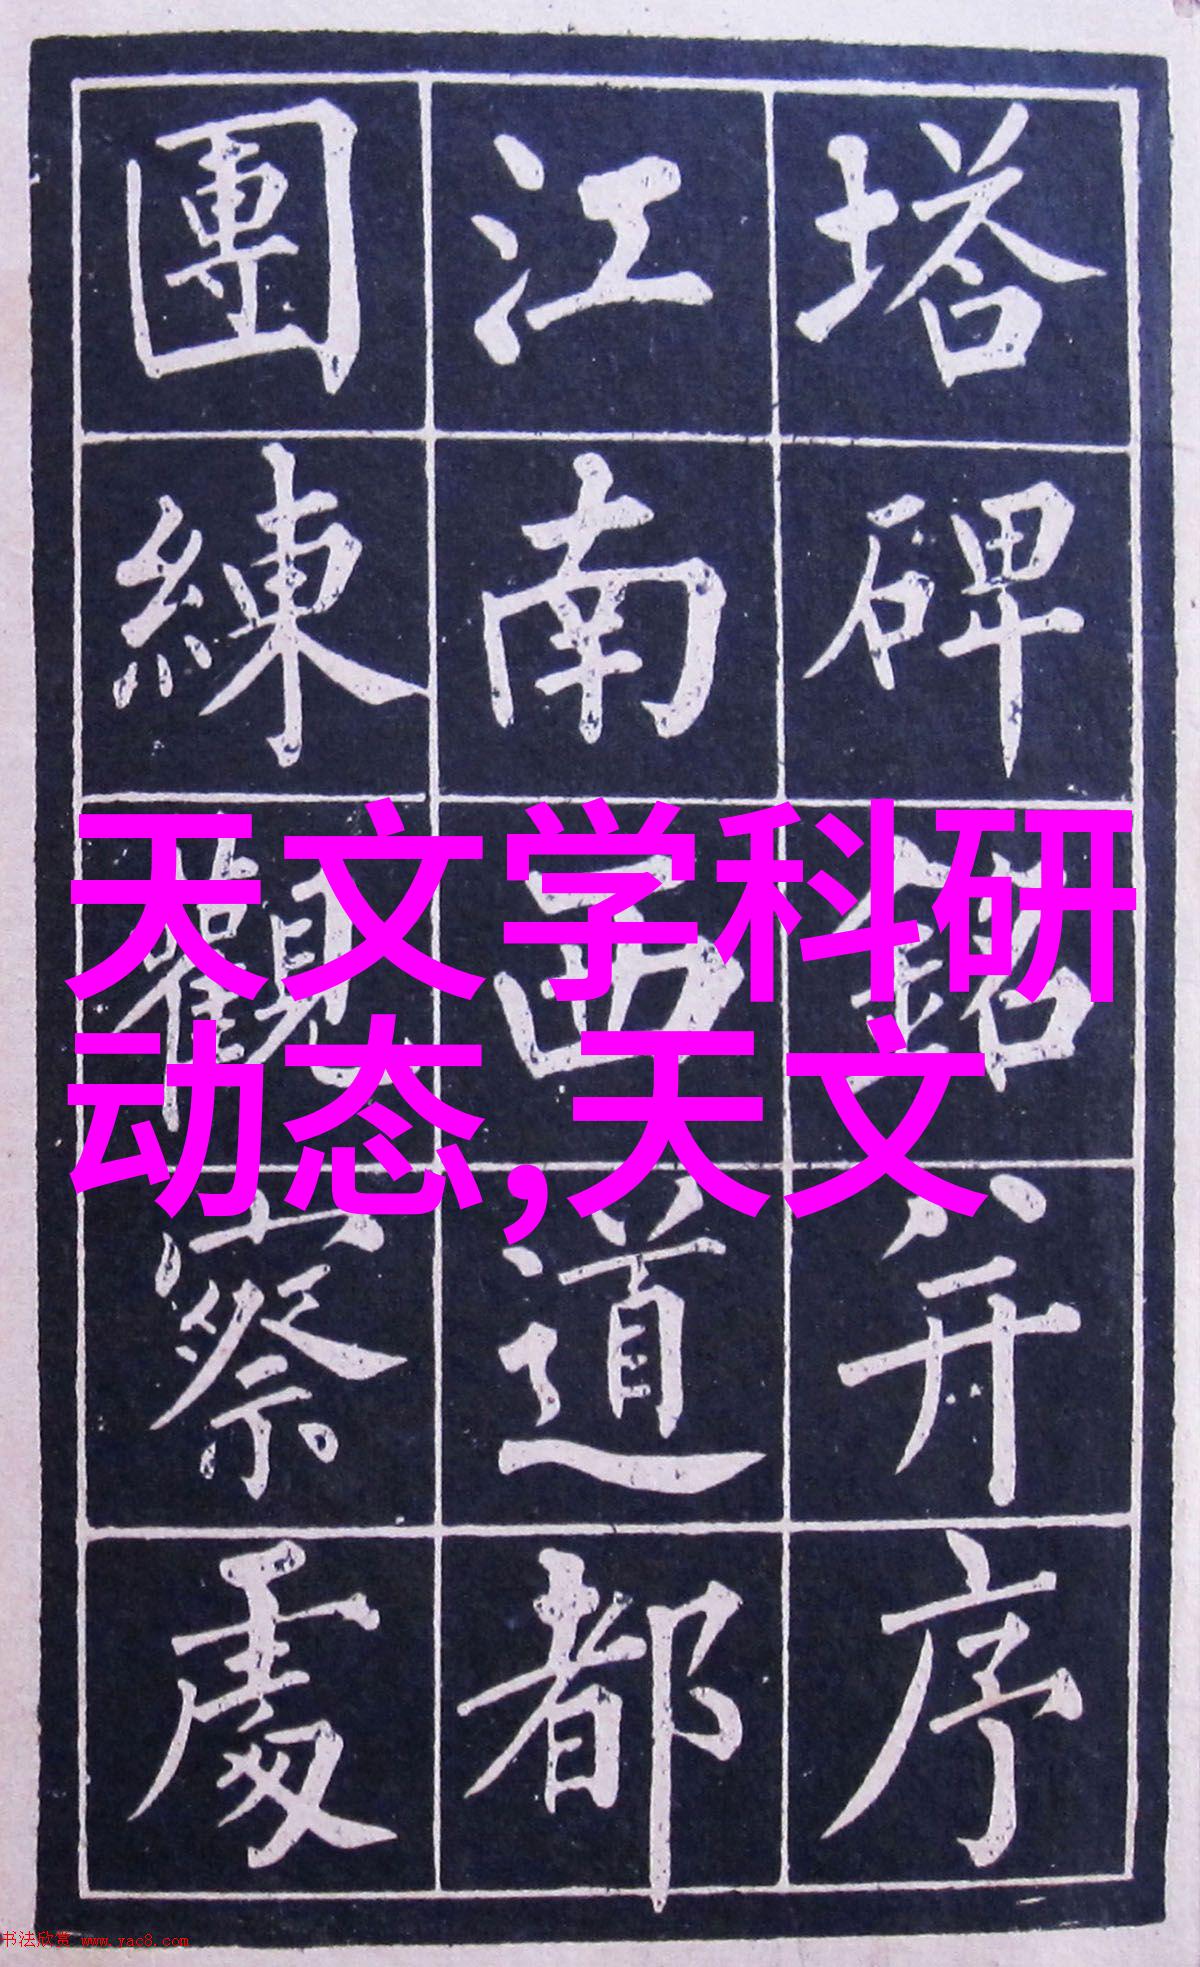 塔碑銘并序
江南西道都
團練觀察處
天文学科研
动态,天文
书法欣赏 www.yac8.com